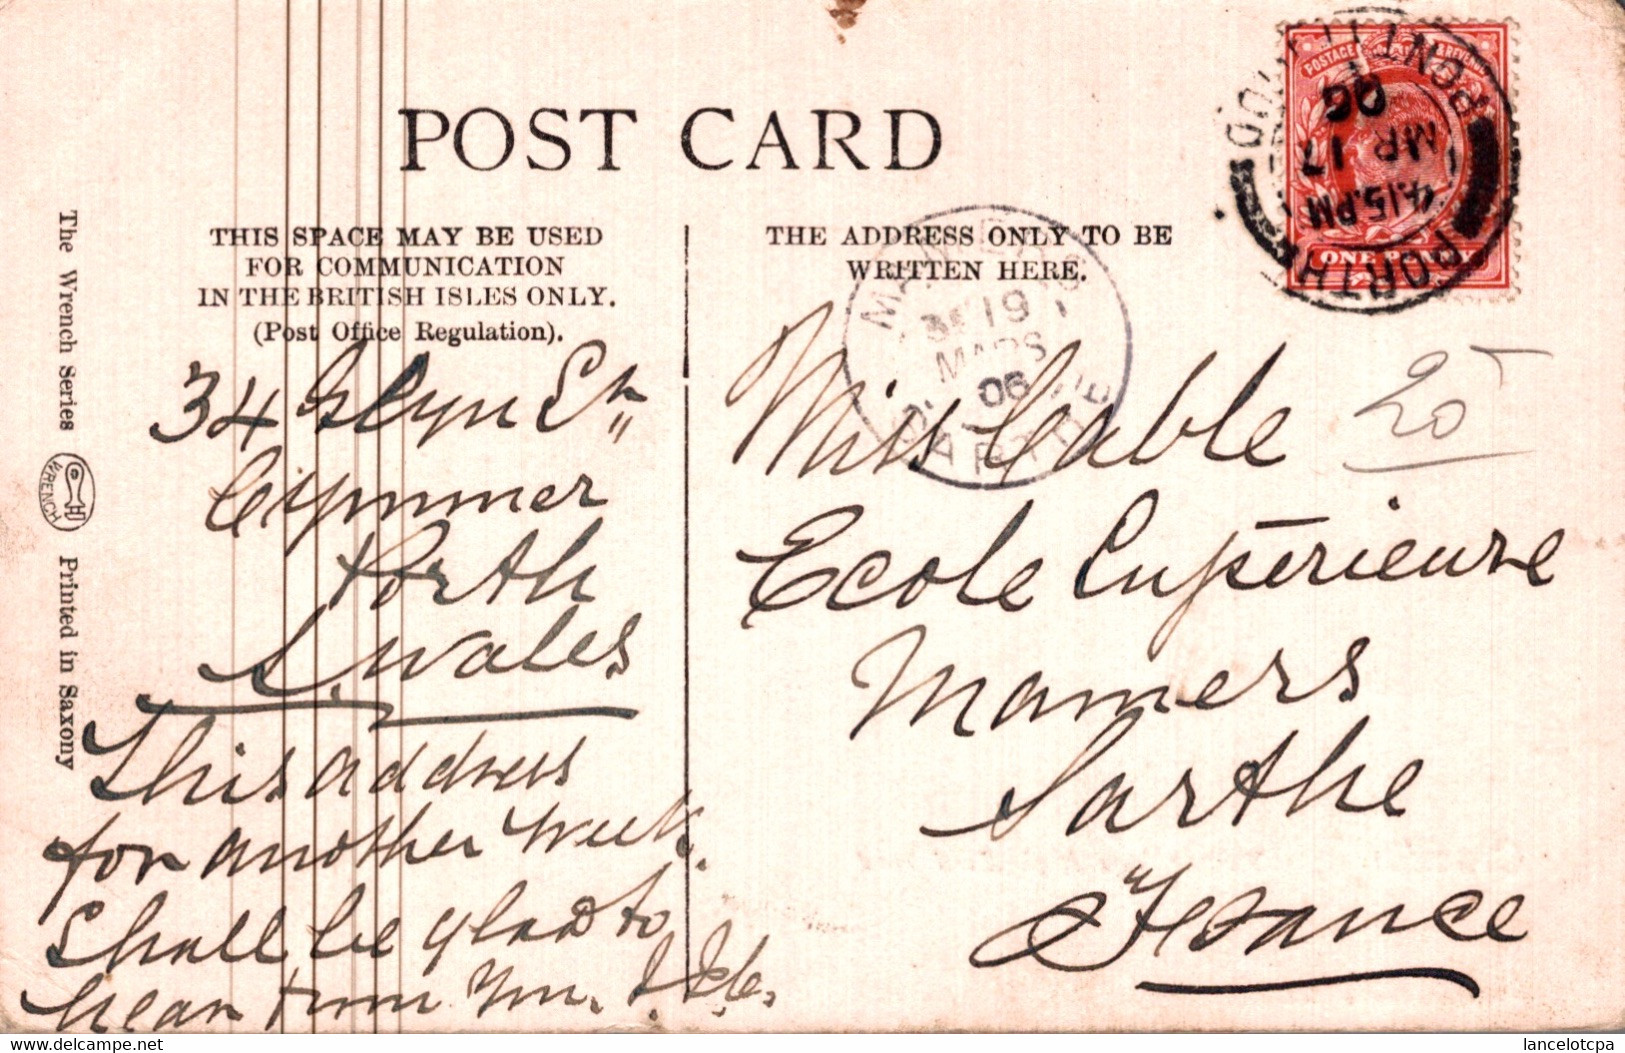 POST CARD
THIS SPACE MAY BE USED
FOR COMMUNICATION
IN THE BRITISH ISLES ONLY.
(Post Office Regulation).
THE ADDRESS ONLY TO BE
WRITTEN HERE.
POSTAGE REVENUE
ONE PENNY
PORTH
PONTYPRIDD
4.15.PM
MR 17
06
MAMERS
3E 19
MARS
06
SARTHE
34 Glyn St
Cymmer
Porth
S. Wales
This address
for another week.
Shall be glad to
hear from you.
Miss Cable
Ecole Supérieure
Mamers
Sarthe
France
20
The Wrench Series
WRENCH
Printed in Saxony
delcampe.net
lancelotcpa